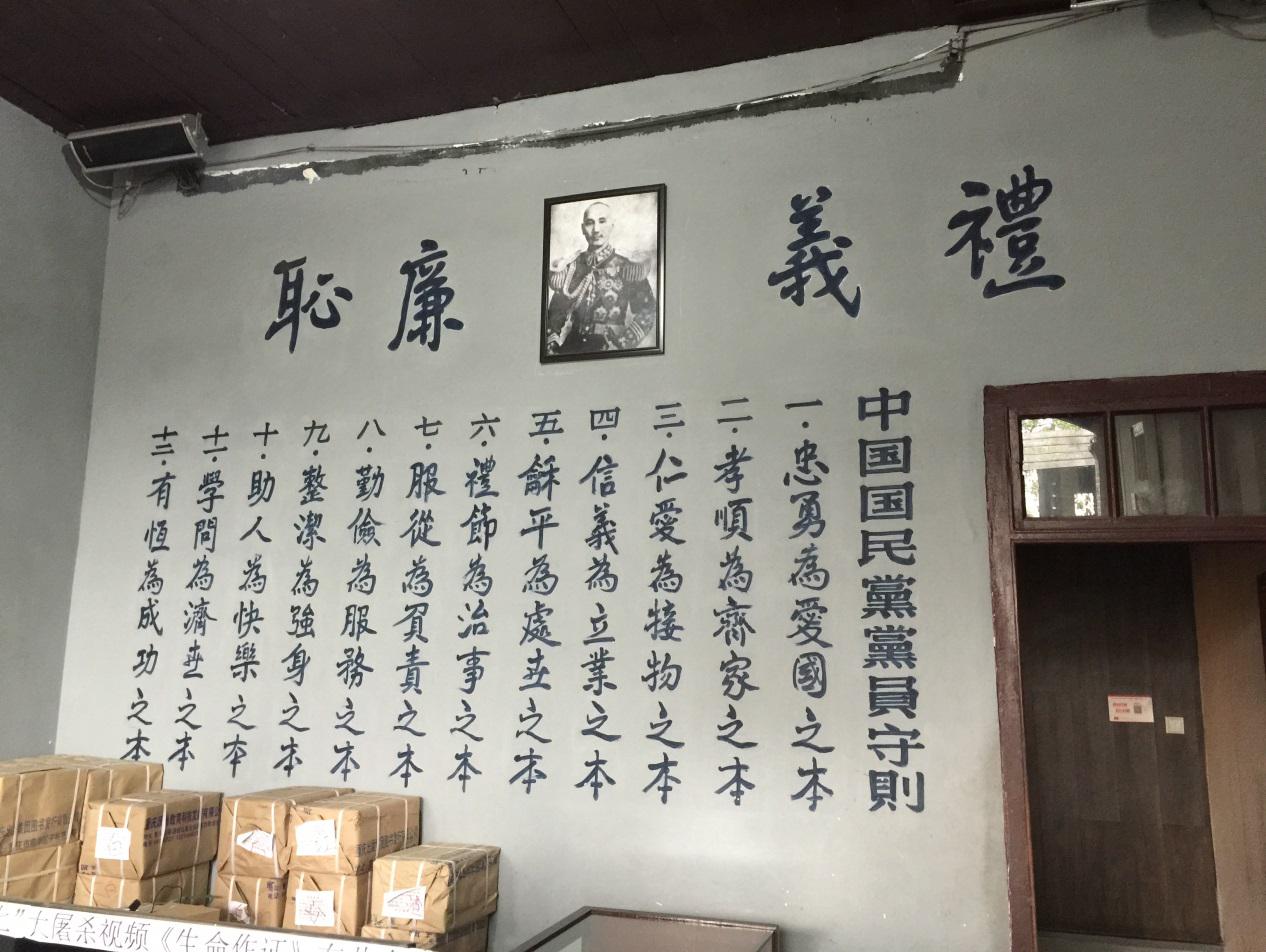 禮義廉恥
中国国民黨黨員守則
一·忠勇為愛國之本
二·孝順為齊家之本
三·仁愛為接物之本
四·信義為立業之本
五·龢平為處世之本
六·禮節為治事之本
七·服從為負責之本
八·勤儉為服務之本
九·整潔為強身之本
十·助人為快樂之本
十一·學問為濟世之本
十二·有恆為成功之本
大屠杀视频《生命作证》